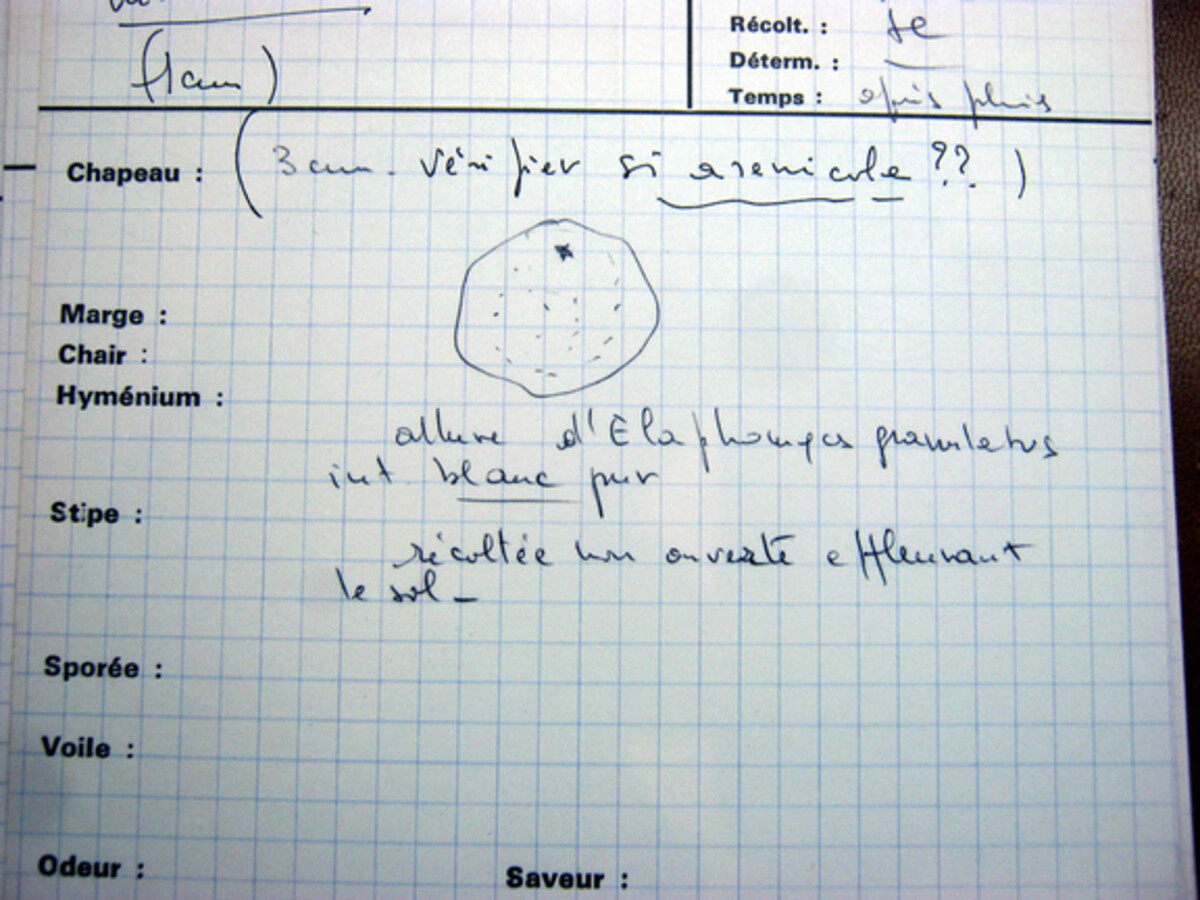 (1 cm)
Récolt. : JE
Déterm. : —
Temps : après pluie
Chapeau : (3 cm. vérifier si arenicole ??)
Marge :
Chair :
Hyménium :
allure d'Elaphomyces granulatus
int. blanc pur
Stipe :
récoltée non ouverte effleurant
le sol –
Sporée :
Voile :
Odeur : Saveur :